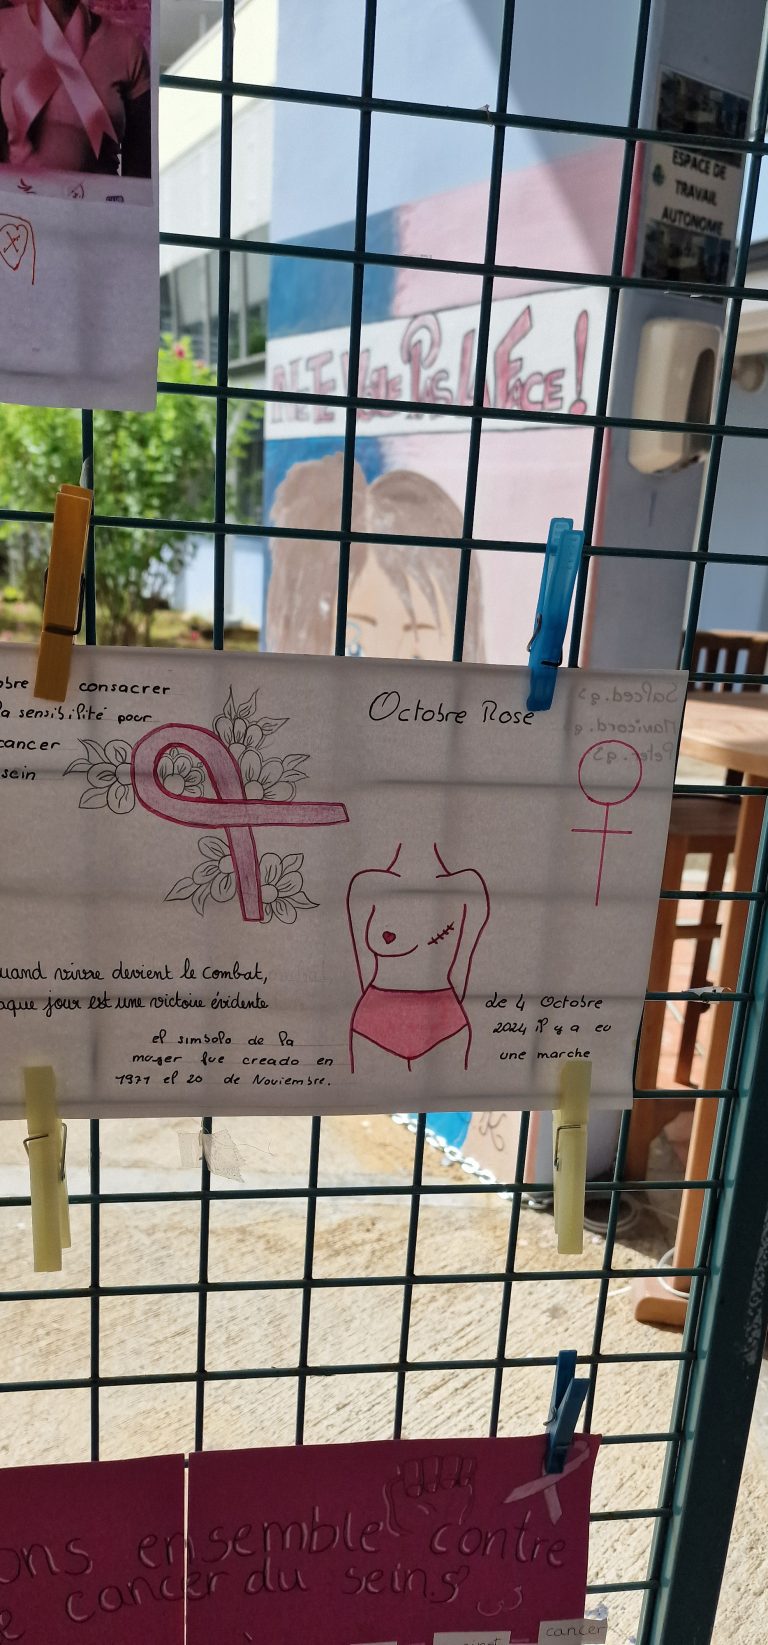 ESPACE DE
TRAVAIL
AUTONOME
NE TE Voile Pas LA FACE!
consacrer
la sensibilité pour
cancer
sein
Octobre Rose
uand vivre devient le combat,
aque jour est une victoire évidente
el simbolo de la
mayer fue creado en
1971 el 20 de Noviembre.
de 4 Octobre
2024 il y a eu
une marche
ons ensemble contre
e cancer du sein.
cancer